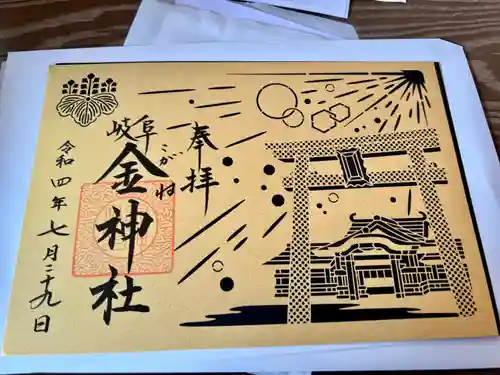 奉拝
岐阜
こがね
金神社
令和四年七月二十九日